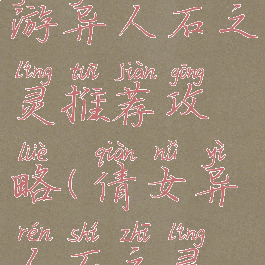 游异人石之
líng tuī jiàn gōng
灵推荐攻
lüè qiàn nǚ yì
略(倩女异
rén shí zhī líng
人石之灵